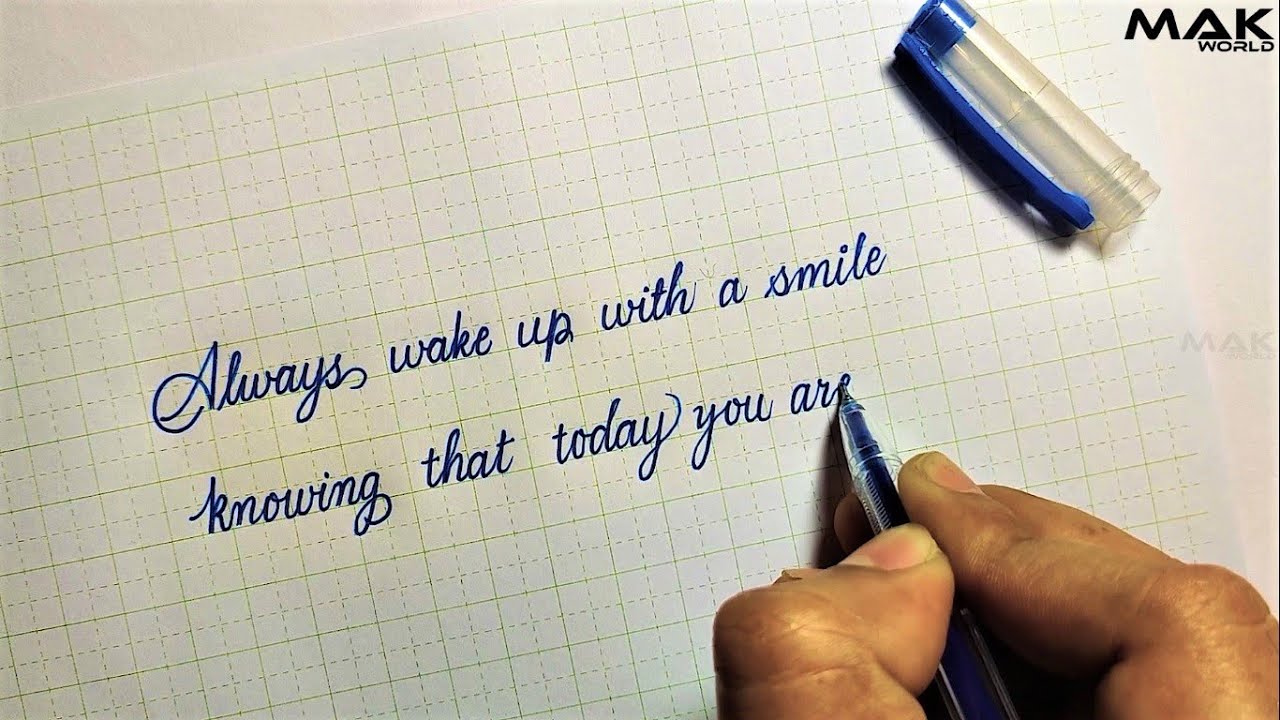 MAK
WORLD
Always wake up with a smile
knowing that today you are
MAK
WORLD